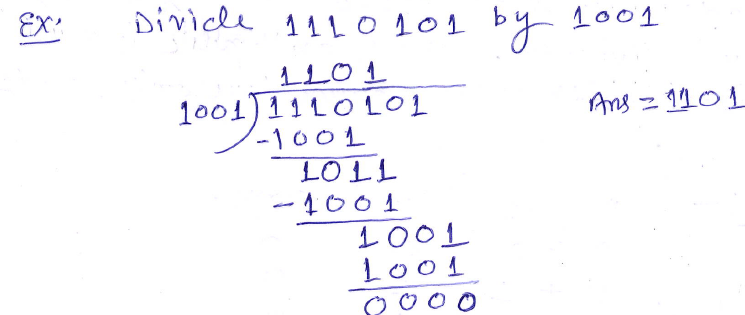 Ex: Divide 1110101 by 1001
1101
1001)1110101 Ans = 1101
-1001
1011
-1001
1001
1001
0000